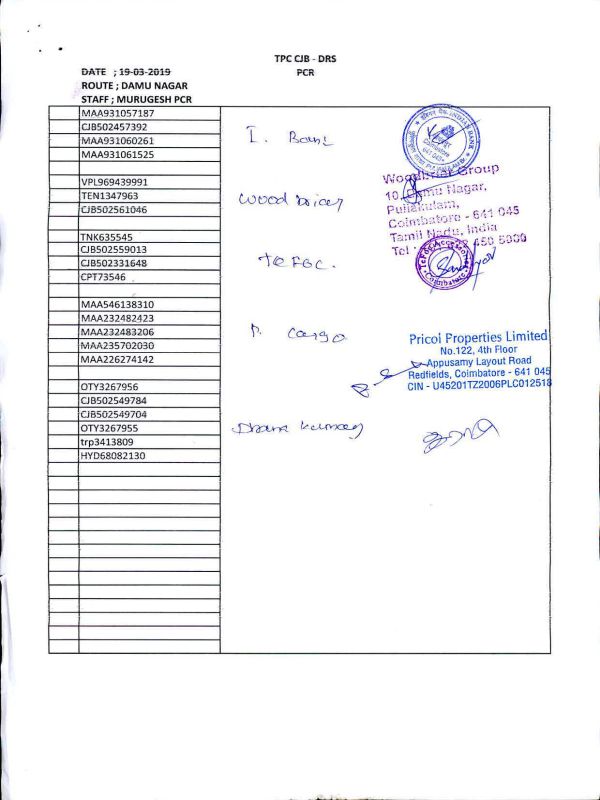 TPC CJB - DRS
PCR
DATE ; 19-03-2019
ROUTE ; DAMU NAGAR
STAFF ; MURUGESH PCR
MAA931057187
CJB502457392
MAA931060261
MAA931061525
I. Bank
VPL969439991
TEN1347963
CJB502561046
Wood briar
Woodbriar Group
10, Damu Nagar,
Puliakulam,
Coimbatore - 641 045
Tamil Nadu, India
Tel
450 5000
TNK635545
CJB502559013
CJB502331648
CPT73546
TEFOC.
Coimbatore
MAA546138310
MAA232482423
MAA232483206
MAA235702030
MAA226274142
P. Cargo
Pricol Properties Limited
No.122, 4th Floor
Appusamy Layout Road
Redfields, Coimbatore - 641 045
CIN - U45201TZ2006PLC012518
OTY3267956
CJB502549784
CJB502549704
OTY3267955
trp3413809
HYD68082130
Dhana kumar